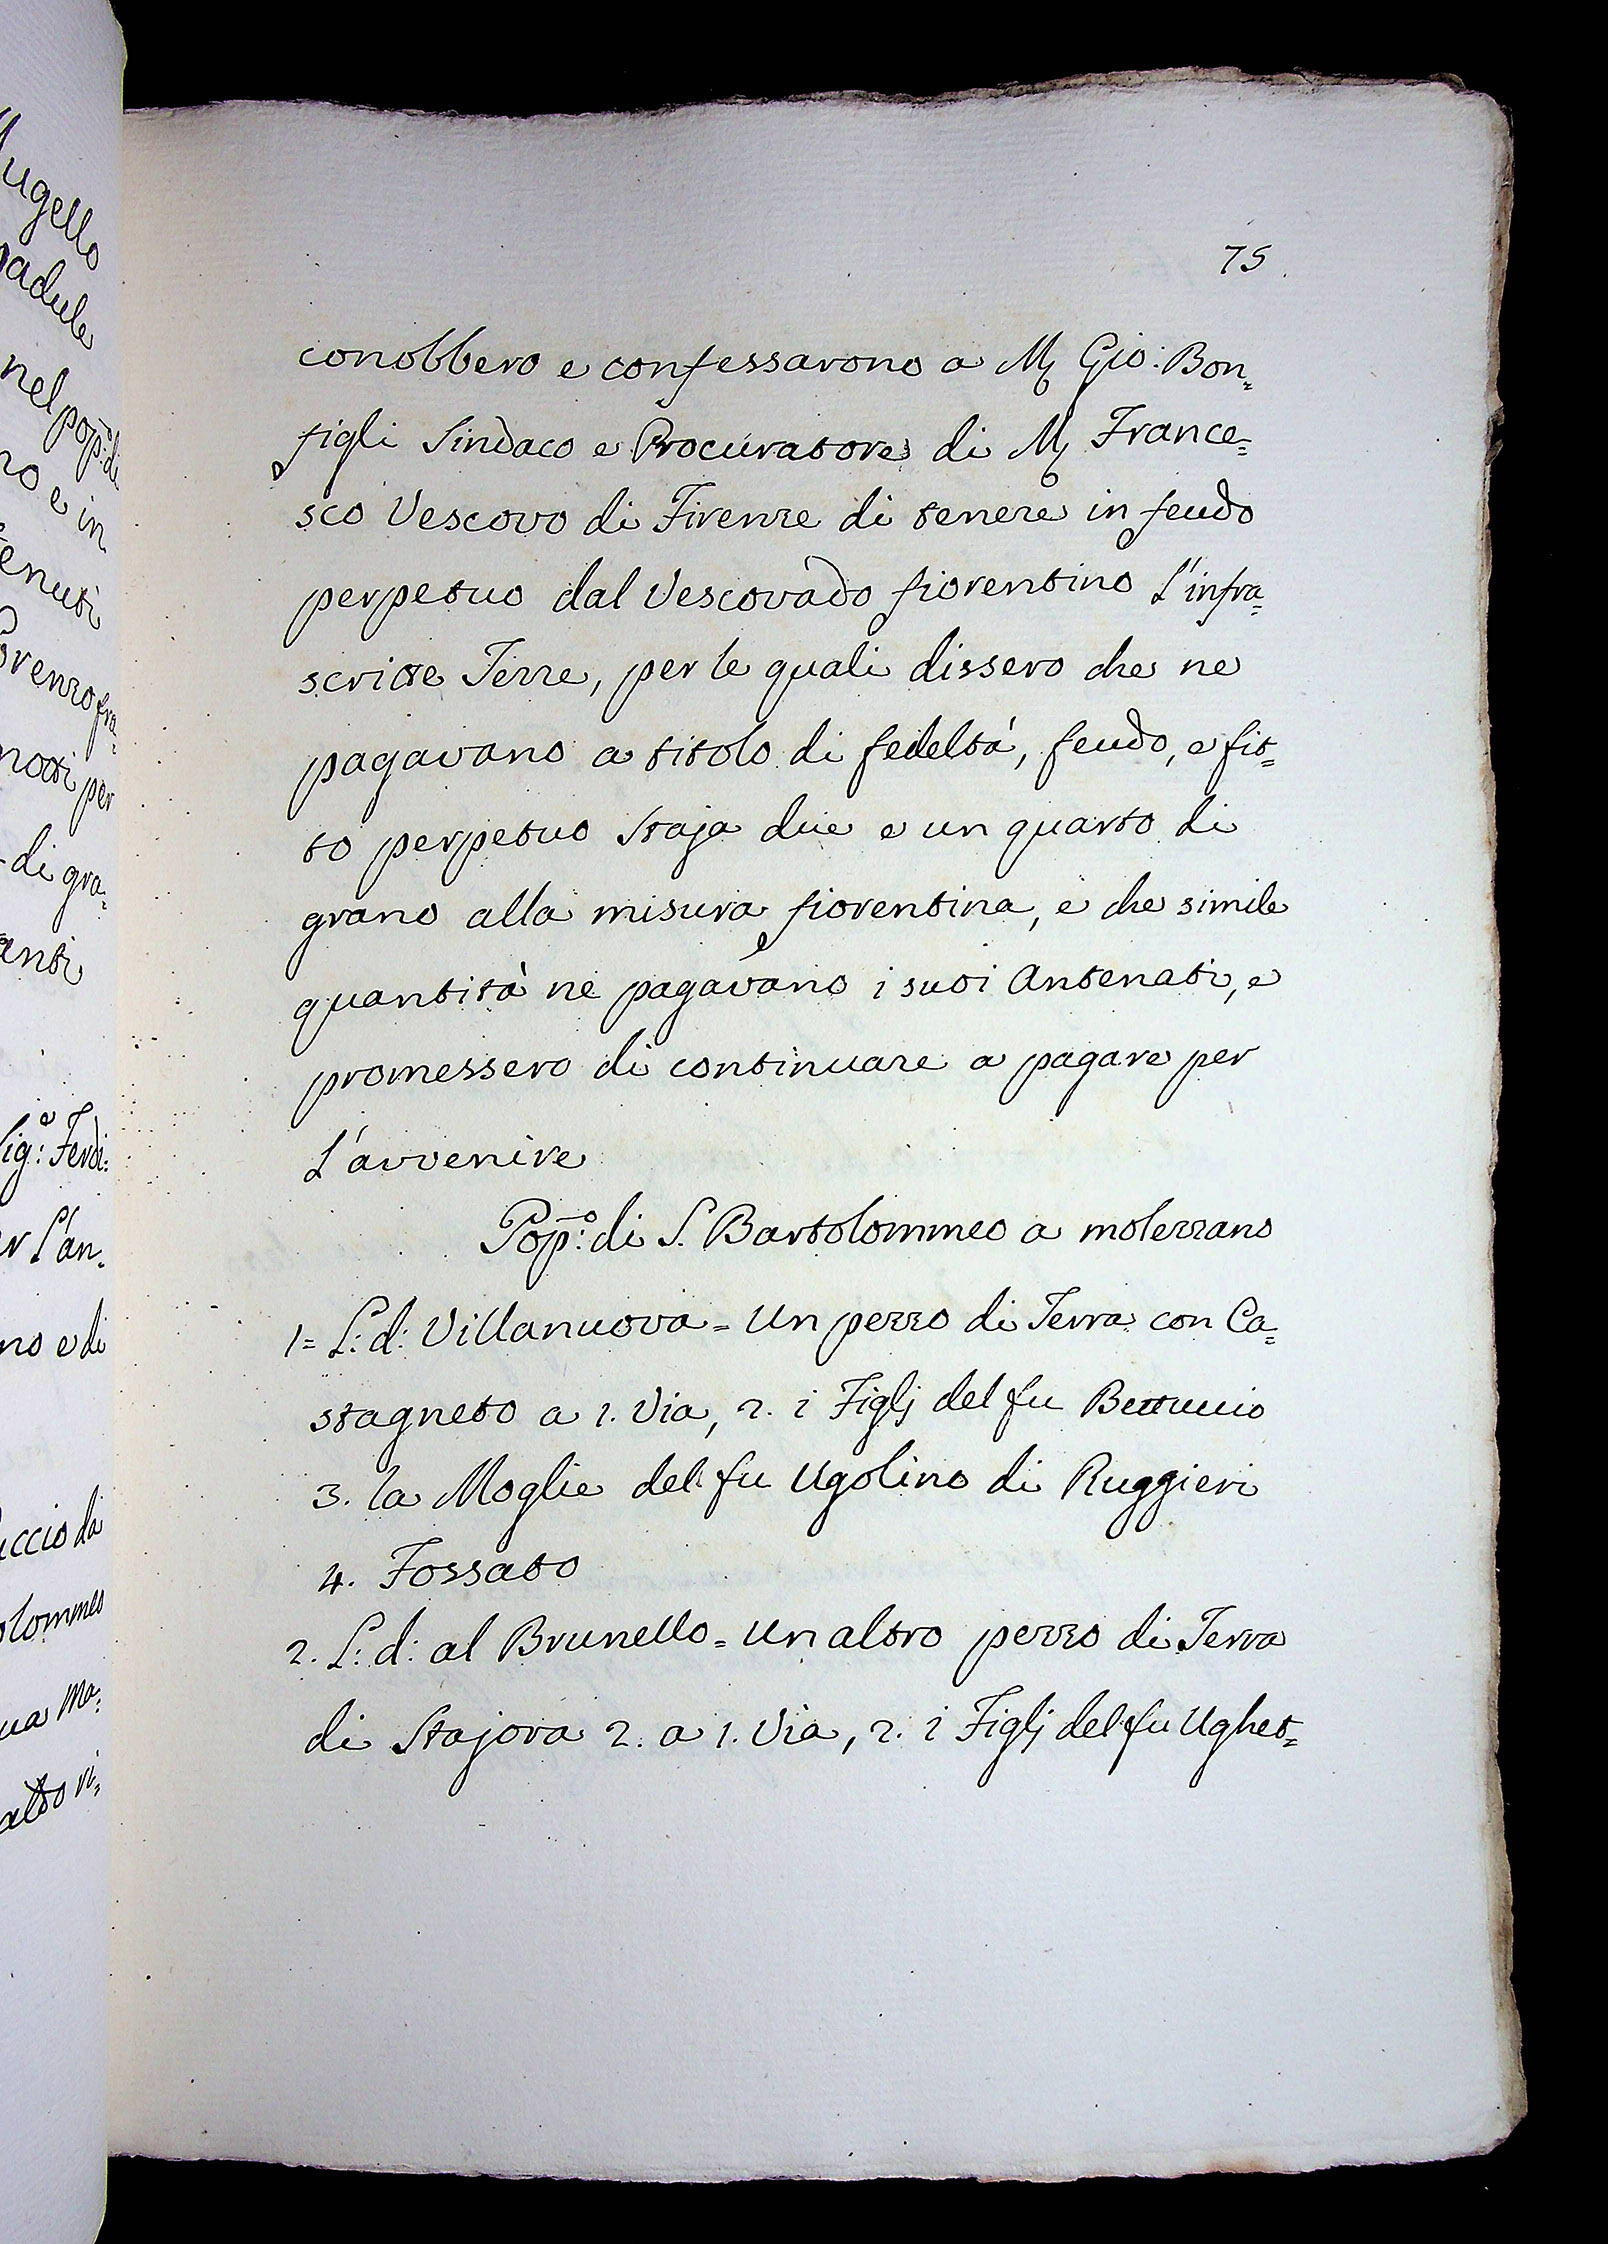 ugello
padule
nel pop:º di
no e in
tenuti
orenzo fra=
notti per
di gra=
anti
Sig:e Ferdi:
L'an=
no e di
uccio da
olommeo
ua Ma=
aldo vi=
75.
conobbero e confessarono a M Gio: Bon=
figli Sindaco e Procuratore di M France=
sco Vescovo di Firenze di tenere in feudo
perpetuo dal Vescovado fiorentino l'infra=
scritte Terre, per le quali dissero che ne
pagavano a titolo di fedeltà, feudo, e fit=
to perpetuo Staja due e un quarto di
grano alla misura fiorentina, e che simile
quantità ne pagavano i suoi Antenati, e
promessero di continuare a pagare per
l'avvenire
Pop:º di S. Bartolommeo a molezzano
1= L: d: Villanuova = Un pezzo di Terra con Ca=
stagneto a 1. Via, 2. i Figlj del fu Bettuccio
3. la Moglie del fu Ugolino di Ruggieri
4. Fossato
2. L: d: al Brunello = Un altro pezzo di Terra
di Stajora 2. a 1. Via, 2. i Figlj del fu Ughet=